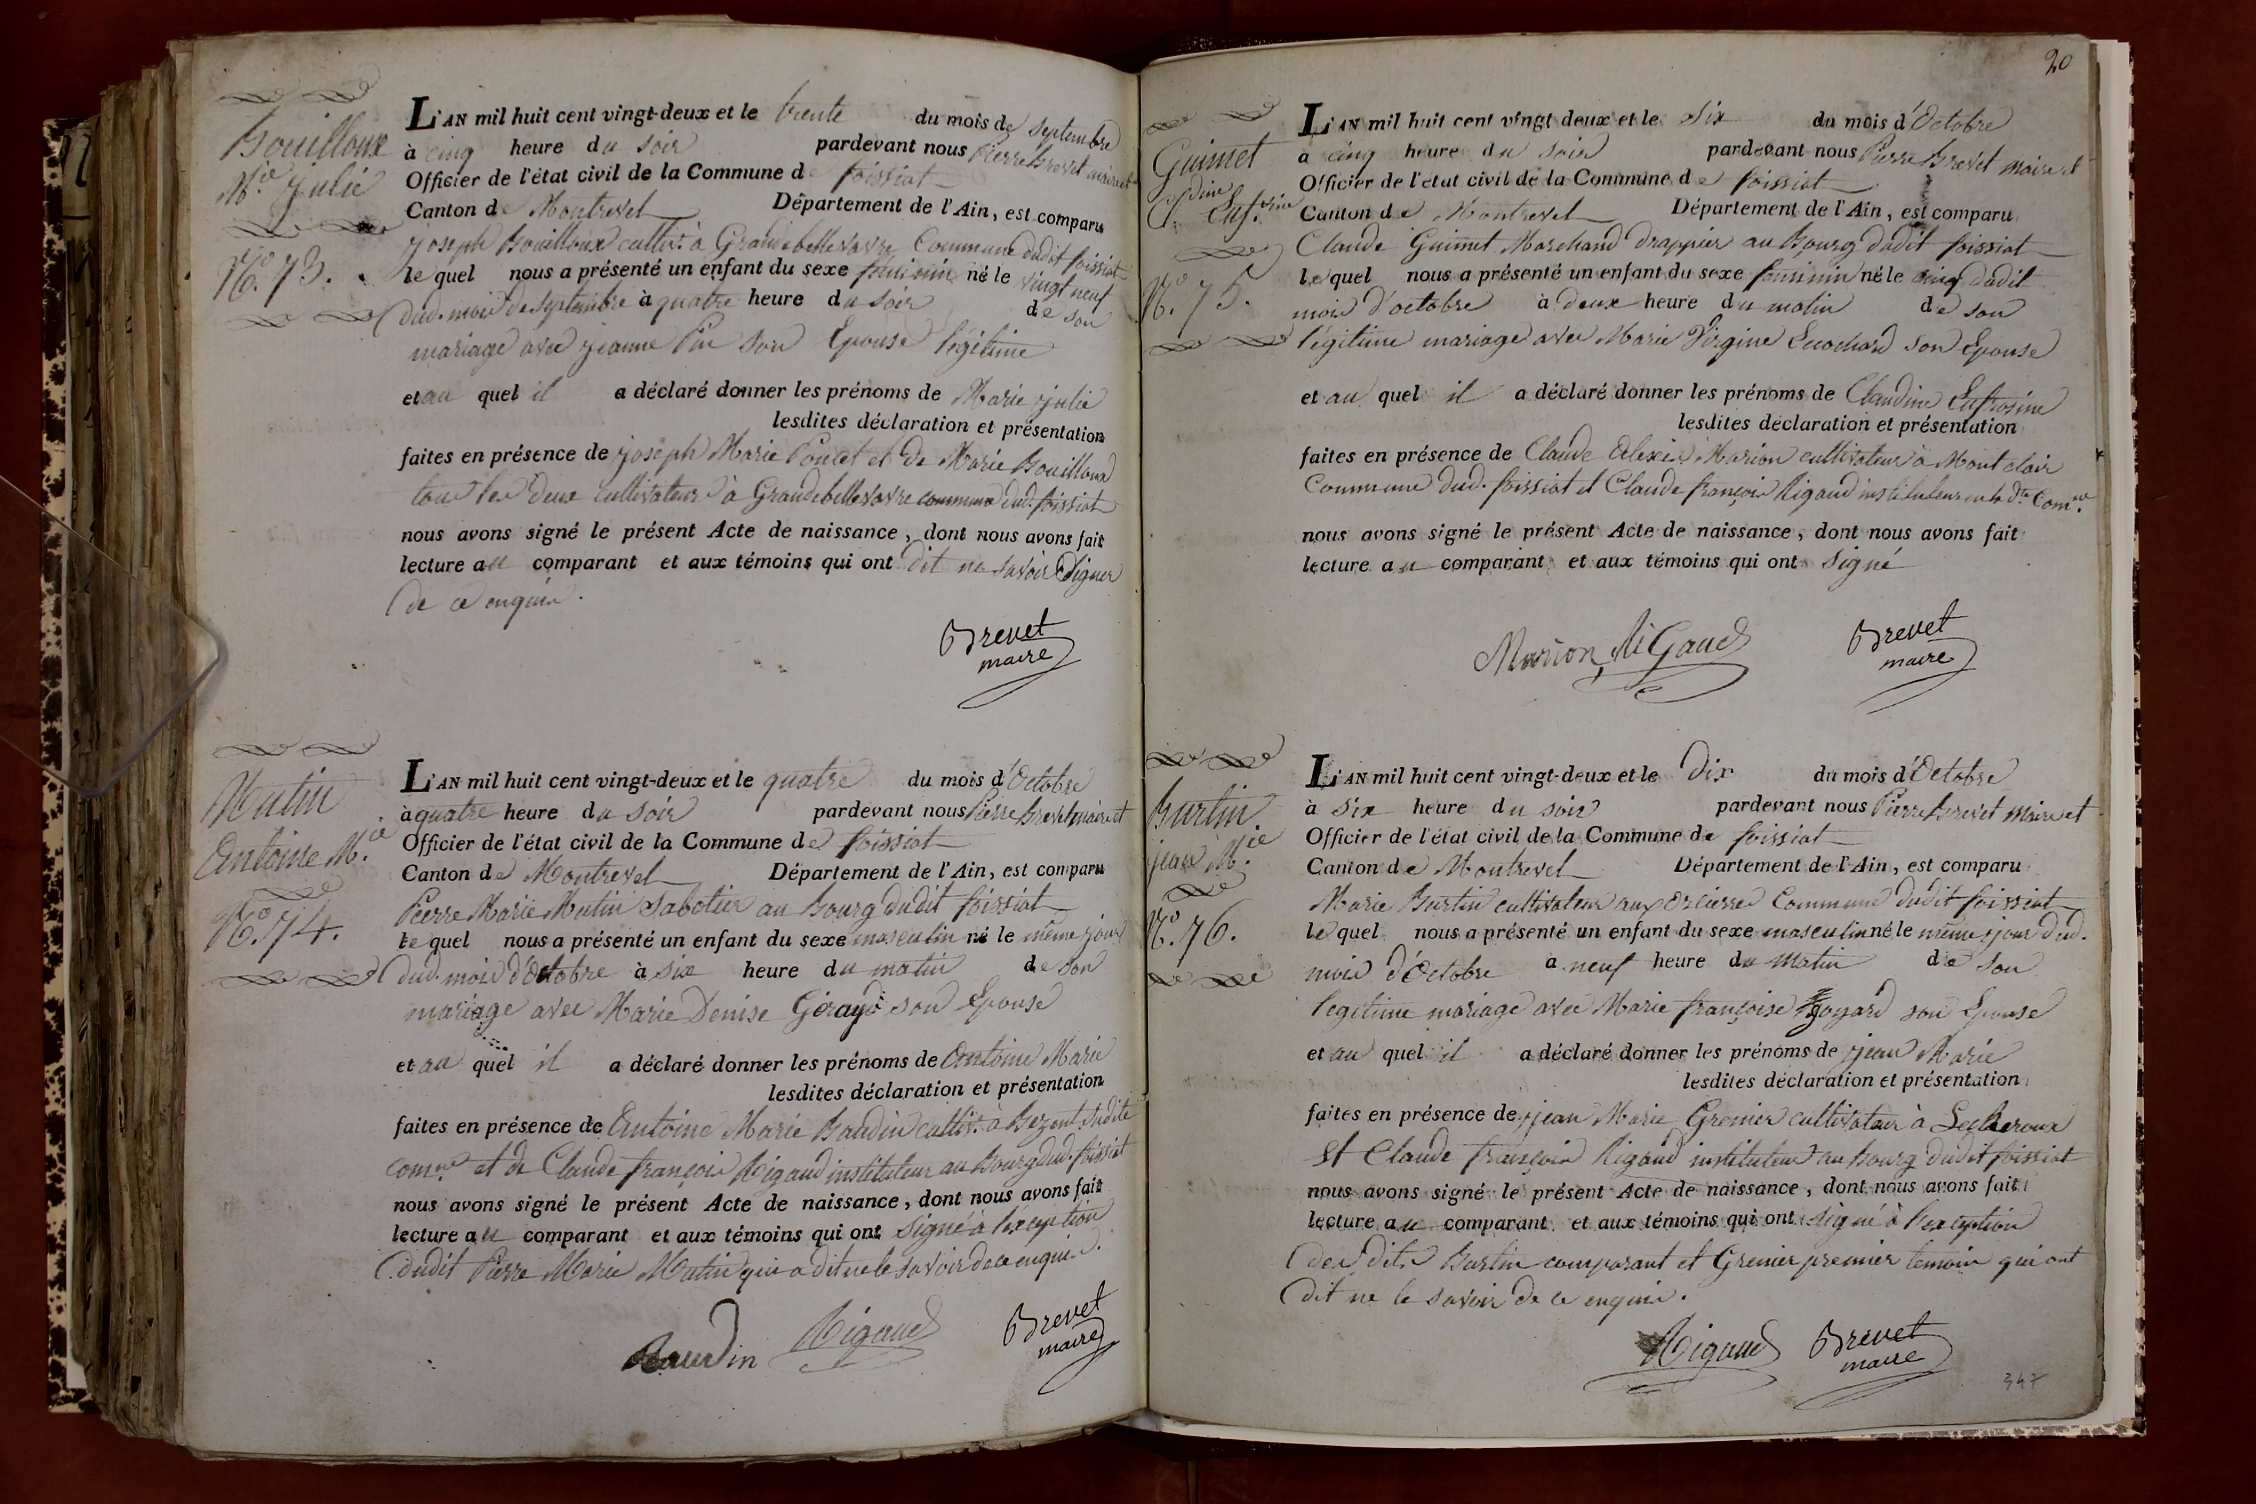 Bouilloux
M.ie julie
N.o 73.
L'AN mil huit cent vingt-deux et le trente du mois de septembre
à cinq heure du soir pardevant nous Pierre Brevet maire et
Officier de l'état civil de la Commune de foissiat
Canton de Montrevel Département de l'Ain, est comparu
joseph Bouilloux cultiv.r à Grandebellevavre Commune dudit foissiat
le quel nous a présenté un enfant du sexe feminin né le vingt neuf
dud. mois de septembre à quatre heure du soir de son
mariage avec jeanne Pin son Epouse légitime
et au quel il a déclaré donner les prénoms de Marie julie
lesdites déclaration et présentation
faites en présence de joseph Marie Poncet et de Marie Bouilloux
tous les deux cultivateurs à Grandebellevavre commune dud. foissiat
nous avons signé le présent Acte de naissance, dont nous avons fait
lecture au comparant et aux témoins qui ont dit ne savoir signer
de ce enquis.
Brevet
maire
Mutin
Antoine M.ie
N.o 74.
L'AN mil huit cent vingt-deux et le quatre du mois d'Octobre
à quatre heure du soir pardevant nous Pierre Brevet maire et
Officier de l'état civil de la Commune de foissiat
Canton de Montrevel Département de l'Ain, est comparu
Pierre Marie Mutin Sabotier au Bourg dudit foissiat
le quel nous a présenté un enfant du sexe masculin né le même jour
dud. mois d'Octobre à six heure du matin de son
mariage avec Marie Denise son Epouse
et au quel il a déclaré donner les prénoms de Antoine Marie
lesdites déclaration et présentation
faites en présence de Antoine Marie Baudin cultiv.r à Bezent susdite
com.ne et de Claude françois Rigaud instituteur au Bourg dud. foissiat
nous avons signé le présent Acte de naissance, dont nous avons fait
lecture au comparant et aux témoins qui ont signé à l'exception
dudit Pierre Marie Mutin qui a dit ne le savoir de ce enquis.
Baudin Rigaud Brevet
maire
20
Guimet
C.dine Euf.sine
N.o 75.
L'AN mil huit cent vingt deux et le six du mois d'Octobre
à cinq heure du soir pardevant nous Pierre Brevet maire et
Officier de l'état civil de la Commune de foissiat
Canton de Montrevel Département de l'Ain, est comparu
Claude Guimet Marchand drappier au Bourg dudit foissiat
le quel nous a présenté un enfant du sexe feminin né le cinq dudit
mois d'octobre à deux heure du matin de son
légitime mariage avec Marie Virgine Ecochard son Epouse
et au quel il a déclaré donner les prénoms de Claudine Eufrosine
lesdites déclaration et présentation
faites en présence de Claude Alexis Marion cultivateur à Mont clair
Commune dud. foissiat et Claude françois Rigaud instituteur en la d.te Com.ne
nous avons signé le présent Acte de naissance, dont nous avons fait
lecture au comparant et aux témoins qui ont signé
Marion RiGaud Brevet
maire
Burtin
jean M.ie
N.o 76.
L'AN mil huit cent vingt-deux et le Dix du mois d'Octobre
à six heure du soir pardevant nous Pierre Brevet maire et
Officier de l'état civil de la Commune de foissiat
Canton de Montrevel Département de l'Ain, est comparu
Marie Burtin cultivateur aux Orcières Commune dudit foissiat
le quel nous a présenté un enfant du sexe masculin né le même jour dud.
mois d'Octobre à neuf heure du matin de son
legitime mariage avec Marie françoise goyard son Epouse
et au quel il a déclaré donner les prénoms de jean Marie
lesdites déclaration et présentation
faites en présence de jean Marie Grenier cultivateur à Lecheroux
et Claude françois Rigaud instituteur au Bourg dudit foissiat
nous avons signé le présent Acte de naissance, dont nous avons fait
lecture au comparant et aux témoins qui ont signé à l'exception
des dits Burtin comparant et Grenier premier temoin qui ont
dit ne le savoir de ce enquis.
Rigaud Brevet
maire
347